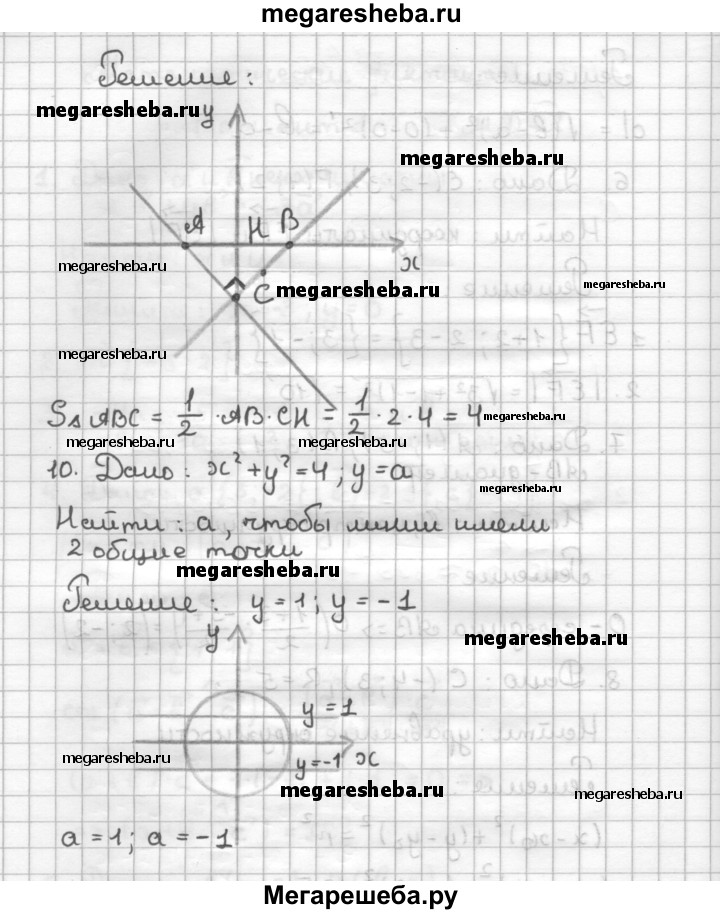 megaresheba.ru
Решение:
megaresheba.ru y
megaresheba.ru
A H B
megaresheba.ru x megaresheba.ru
C megaresheba.ru
megaresheba.ru
S△ABC = 1/2 · AB · CH = 1/2 · 2 · 4 = 4 megaresheba.ru
megaresheba.ru megaresheba.ru
10. Дано: x² + y² = 4; y = a
megaresheba.ru
Найти: a, чтобы линии имели
2 общие точки
megaresheba.ru
Решение: y = 1; y = -1
y megaresheba.ru
y = 1
megaresheba.ru y = -1 x
megaresheba.ru megaresheba.ru
a = 1; a = -1
Мегарешеба.ру